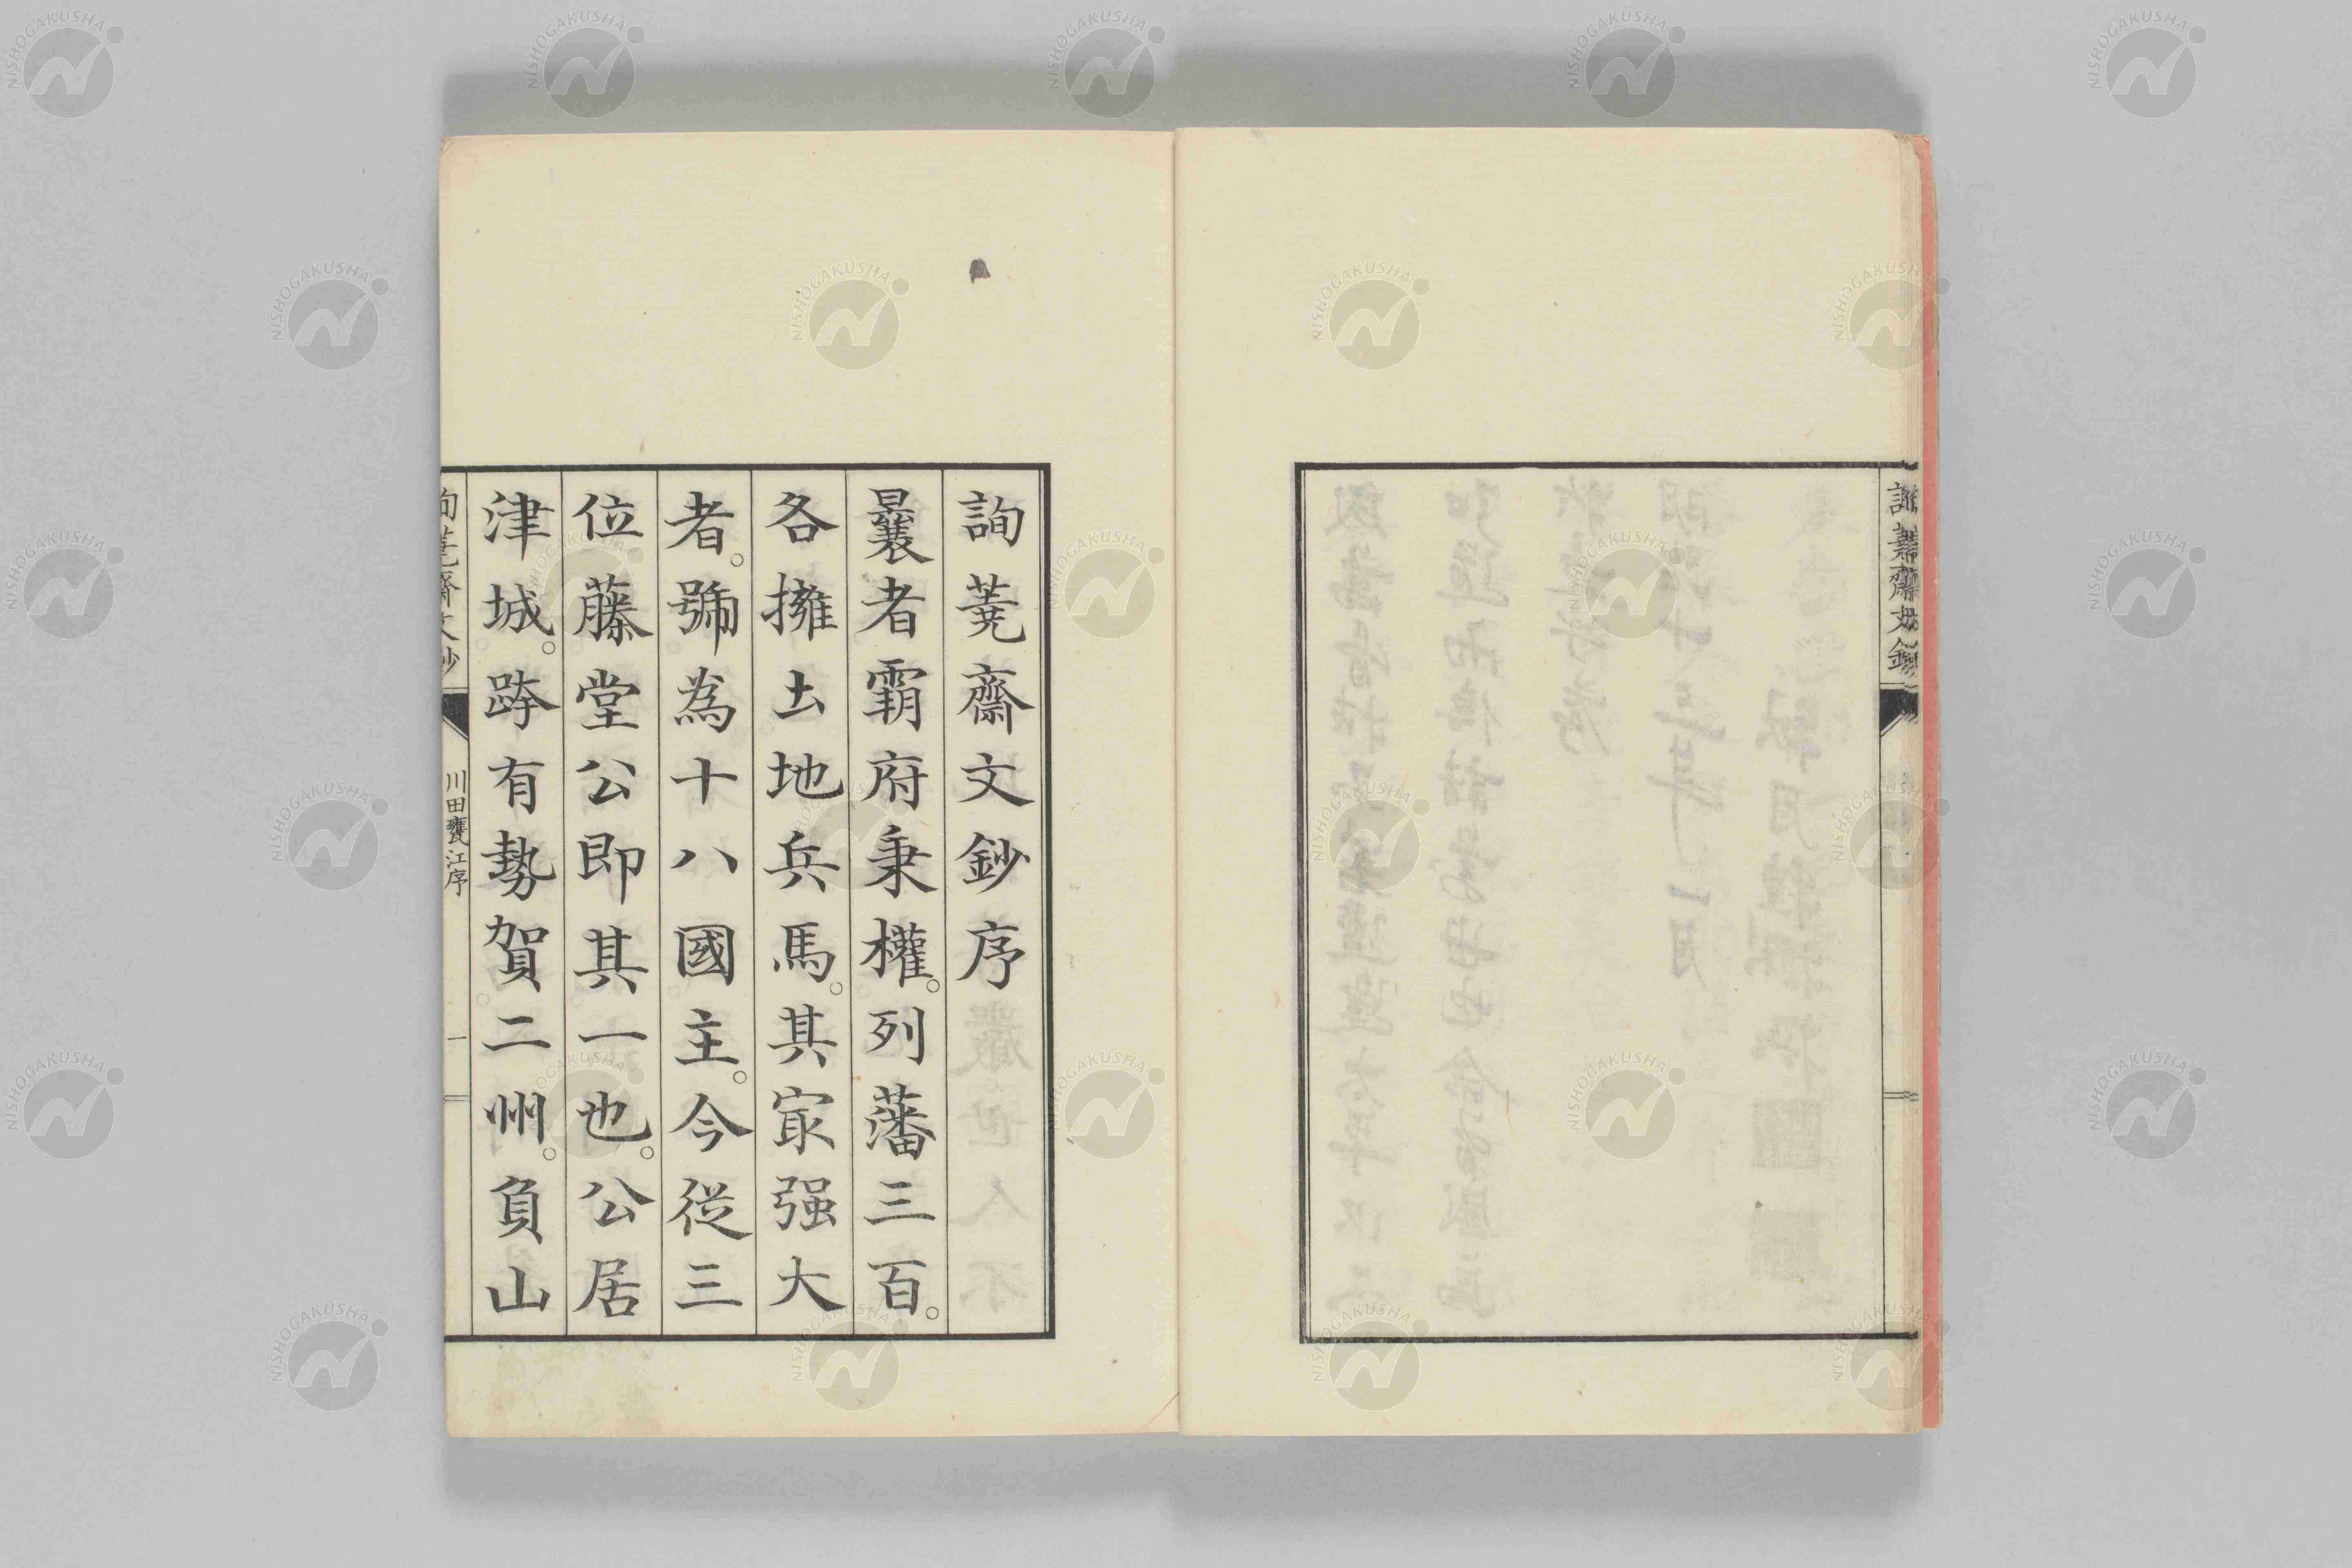 詢蕘齋文鈔序
曩者霸府秉權。列藩三百。
各擁土地兵馬。其家强大
者。號為十八國主。今從三
位藤堂公即其一也。公居
津城。跨有勢賀二州。負山
詢蕘齋文鈔
川田甕江序
一
NISHOGAKUSHA